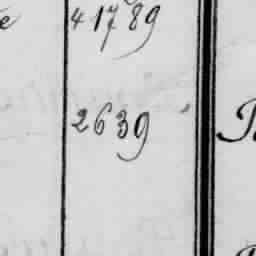 41789
2639